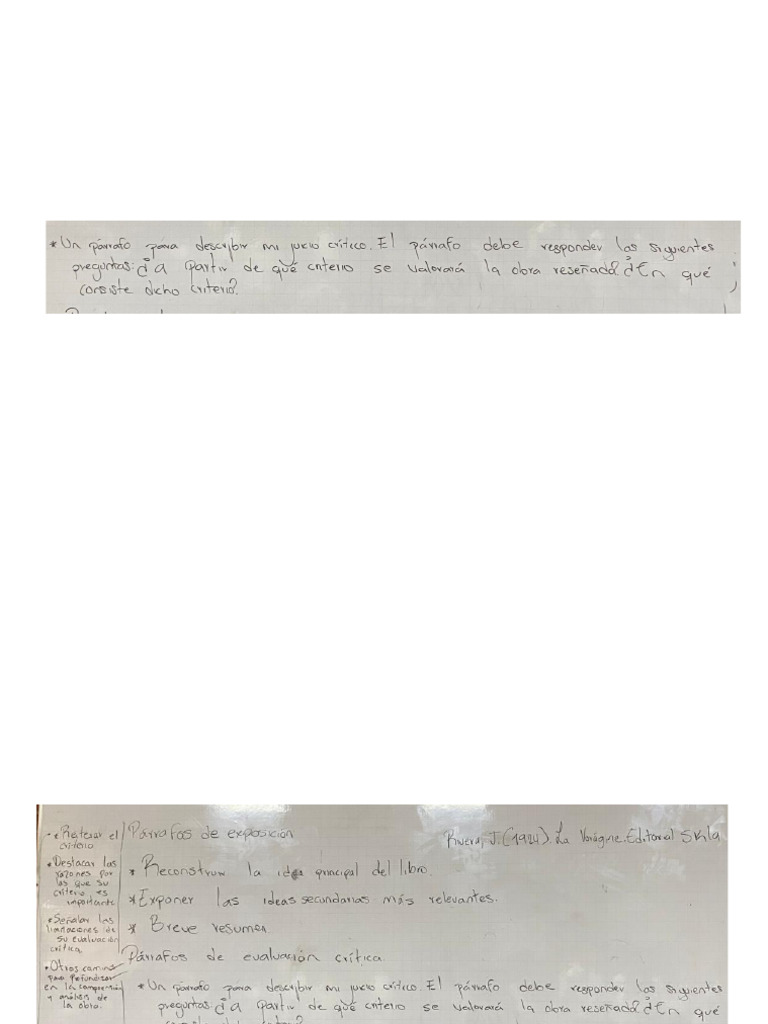 * Un párrafo para describir mi juicio crítico. El párrafo debe responder las siguientes
preguntas: ¿a partir de qué criterio se valorará la obra reseñada? ¿En qué
consiste dicho criterio?
Párrafos de exposición
Rivera, J. (1924). La Vorágine. Editorial Skla
* Reconstruir la idea principal del libro.
* Exponer las ideas secundarias más relevantes.
* Breve resumen
Párrafos de evaluación crítica
* Un párrafo para describir mi juicio crítico. El párrafo debe responder las siguientes
preguntas: ¿a partir de qué criterio se valorará la obra reseñada? ¿En qué
* Reiterar el
criterio
* Destacar las
razones por
las que su
criterio es
importante
* Señalar las
limitaciones de
su evaluación
crítica.
* Otros caminos
para profundizar
en la comprensión
y análisis de
la obra.